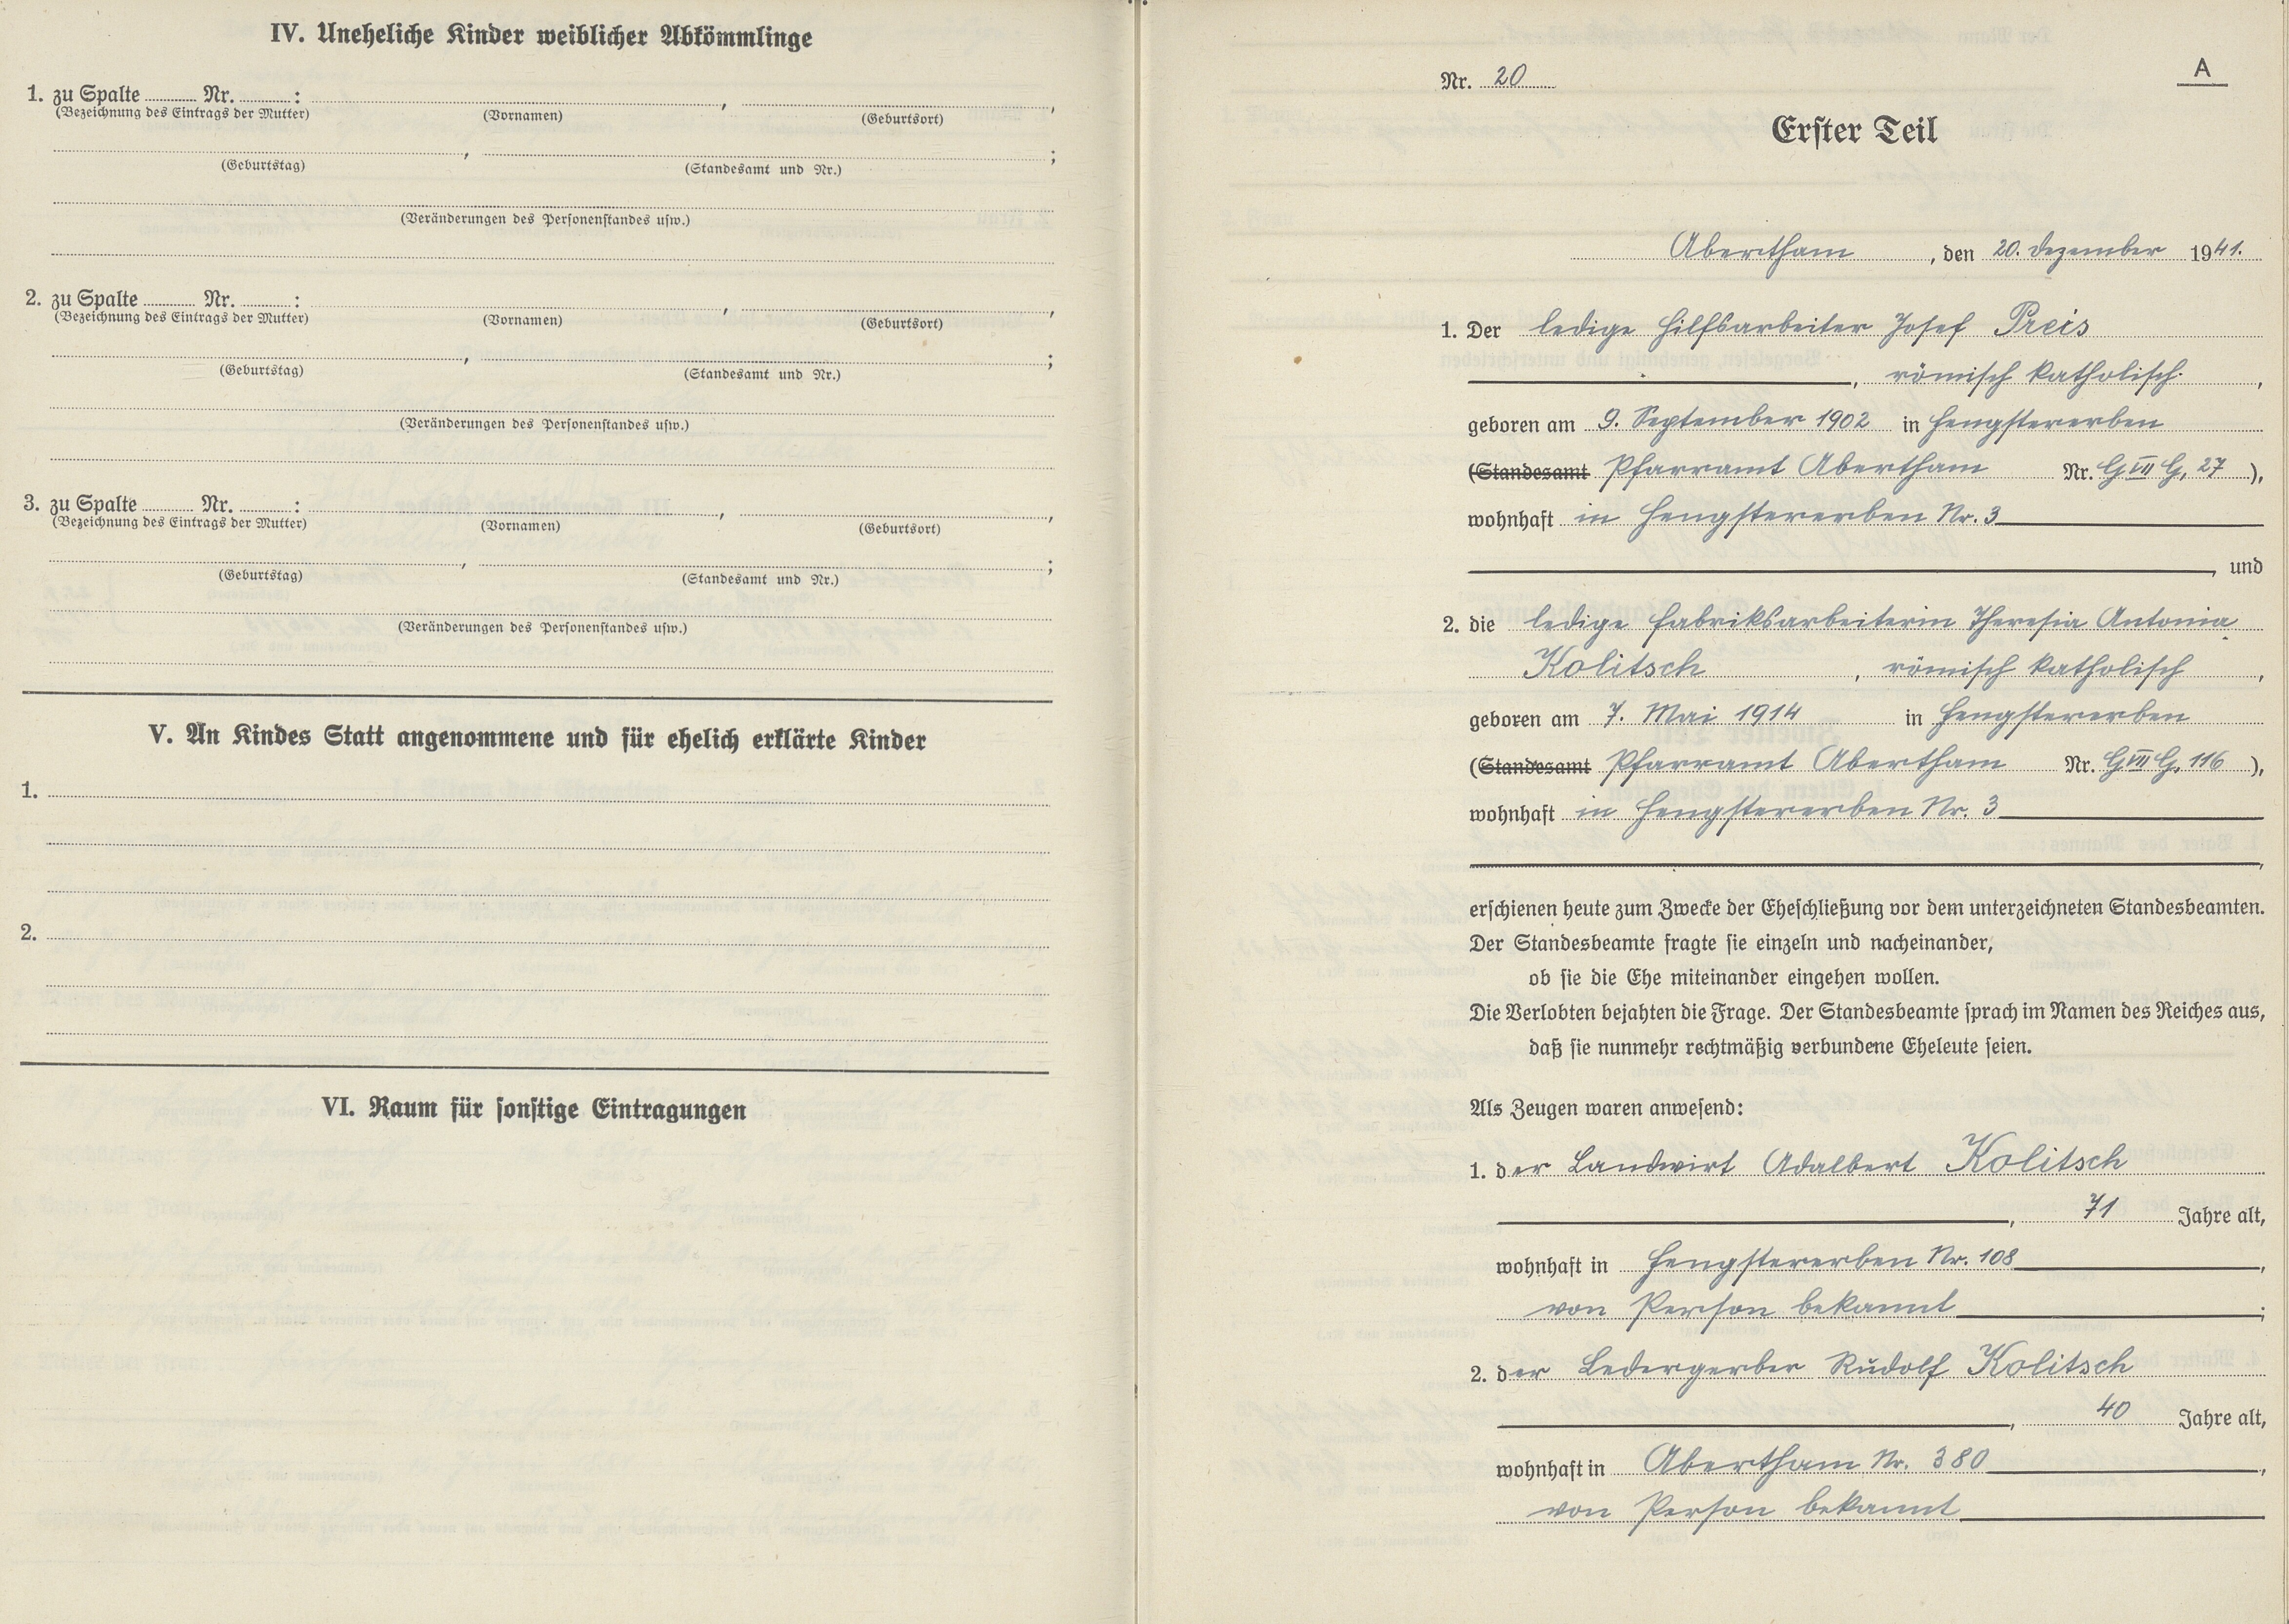 IV. Uneheliche Kinder weiblicher Abkömmlinge
1. zu Spalte ......... Nr. ......... : , ,
(Bezeichnung des Eintrags der Mutter) (Vornamen) (Geburtsort)
, ;
(Geburtstag) (Standesamt und Nr.)
(Veränderungen des Personenstandes usw.)
2. zu Spalte ......... Nr. ......... : , ,
(Bezeichnung des Eintrags der Mutter) (Vornamen) (Geburtsort)
, ;
(Geburtstag) (Standesamt und Nr.)
(Veränderungen des Personenstandes usw.)
3. zu Spalte ......... Nr. ......... : , ,
(Bezeichnung des Eintrags der Mutter) (Vornamen) (Geburtsort)
, ;
(Geburtstag) (Standesamt und Nr.)
(Veränderungen des Personenstandes usw.)
V. An Kindes Statt angenommene und für ehelich erklärte Kinder
1.
2.
VI. Raum für sonstige Eintragungen
A
Nr. 20
Erster Teil
Abertham, den 20. Dezember 1941.
1. Der ledige Hilfsarbeiter Josef Preis
, römisch katholisch,
geboren am 9. September 1902 in Hengstererben
(Standesamt Pfarramt Abertham Nr. G VIII G, 27),
wohnhaft in Hengstererben Nr. 3
, und
2. die ledige Fabriksarbeiterin Theresia Antonia
Kolitsch, römisch katholisch,
geboren am 7. Mai 1914 in Hengstererben
(Standesamt Pfarramt Abertham Nr. G VIII G, 116),
wohnhaft in Hengstererben Nr. 3
,
erschienen heute zum Zwecke der Eheschließung vor dem unterzeichneten Standesbeamten.
Der Standesbeamte fragte sie einzeln und nacheinander,
ob sie die Ehe miteinander eingehen wollen.
Die Verlobten bejahten die Frage. Der Standesbeamte sprach im Namen des Reiches aus,
daß sie nunmehr rechtmäßig verbundene Eheleute seien.
Als Zeugen waren anwesend:
1. der Landwirt Adalbert Kolitsch
, 71 Jahre alt,
wohnhaft in Hengstererben Nr. 108,
von Person bekannt;
2. der Ledergerber Rudolf Kolitsch
, 40 Jahre alt,
wohnhaft in Abertham Nr. 380,
von Person bekannt